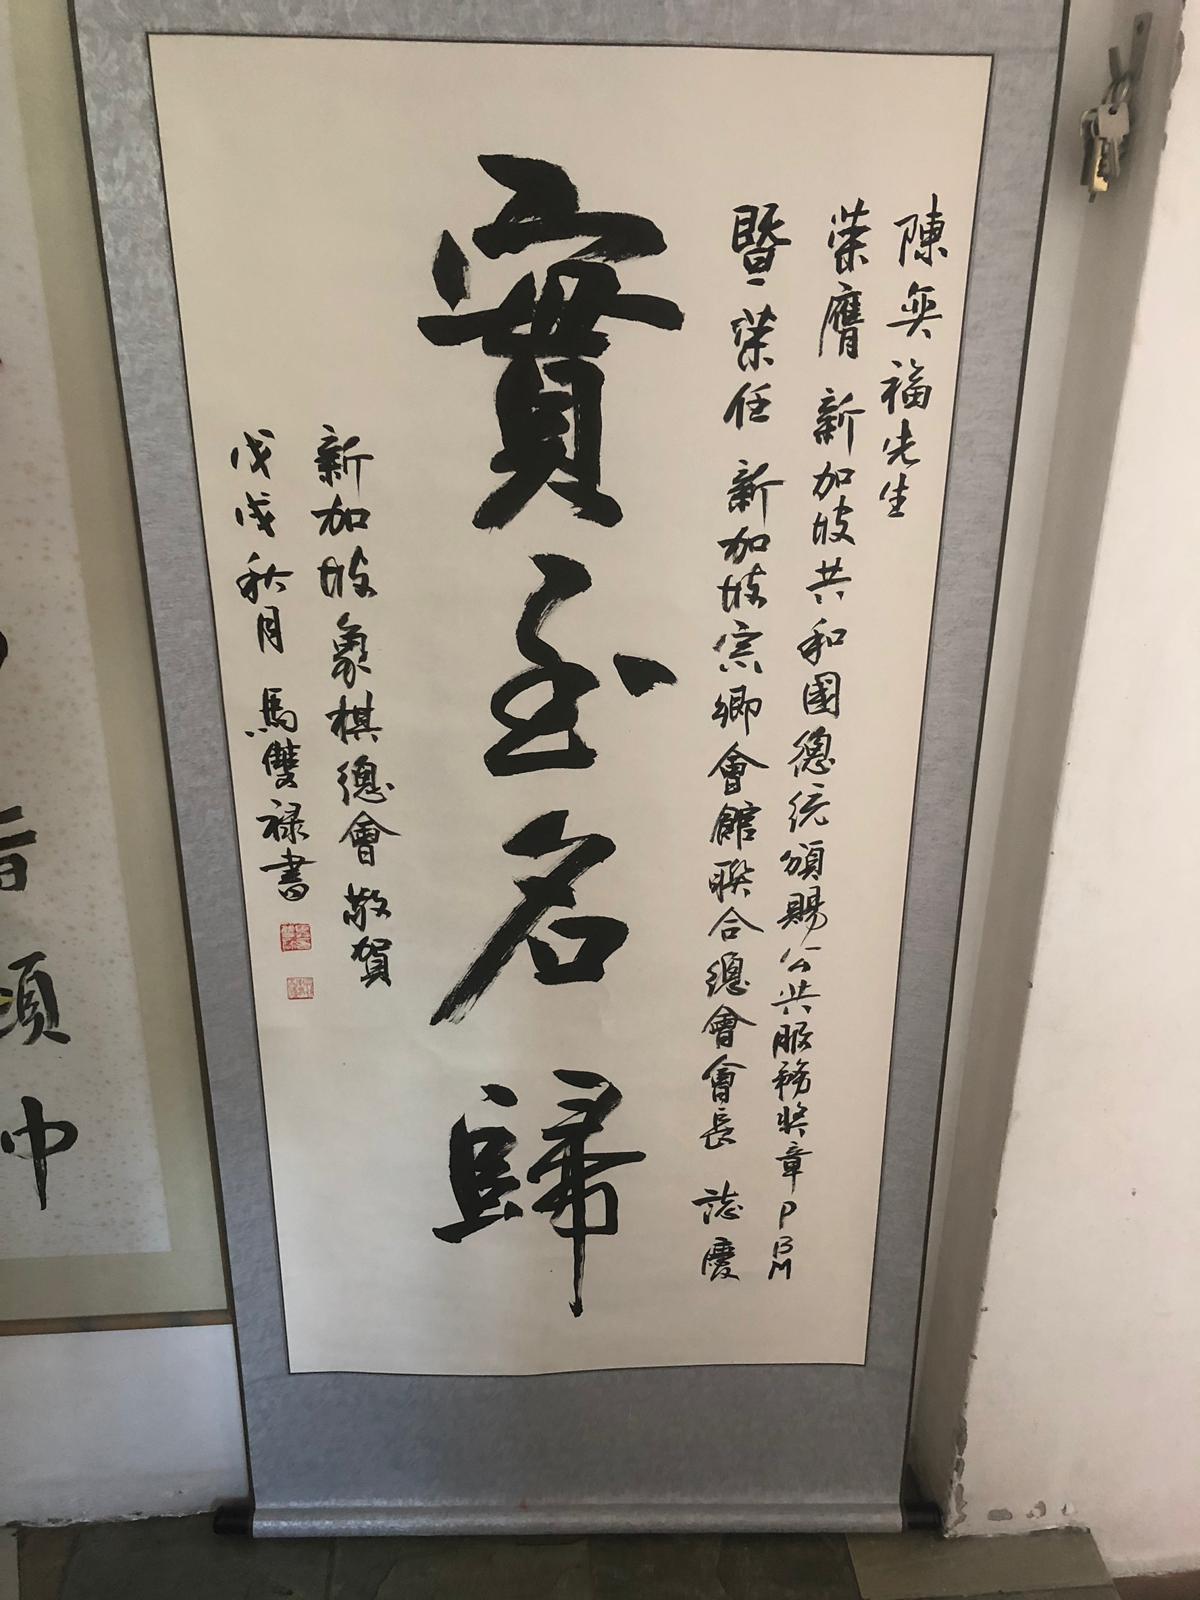 陳奕福先生
榮膺 新加坡共和國總統頒賜公共服務奖章PBM
暨榮任 新加坡宗鄉會館聯合總會會長 誌慶
實至名歸
新加坡象棋總會 敬賀
戊戌秋月 馬雙禄書
須
中